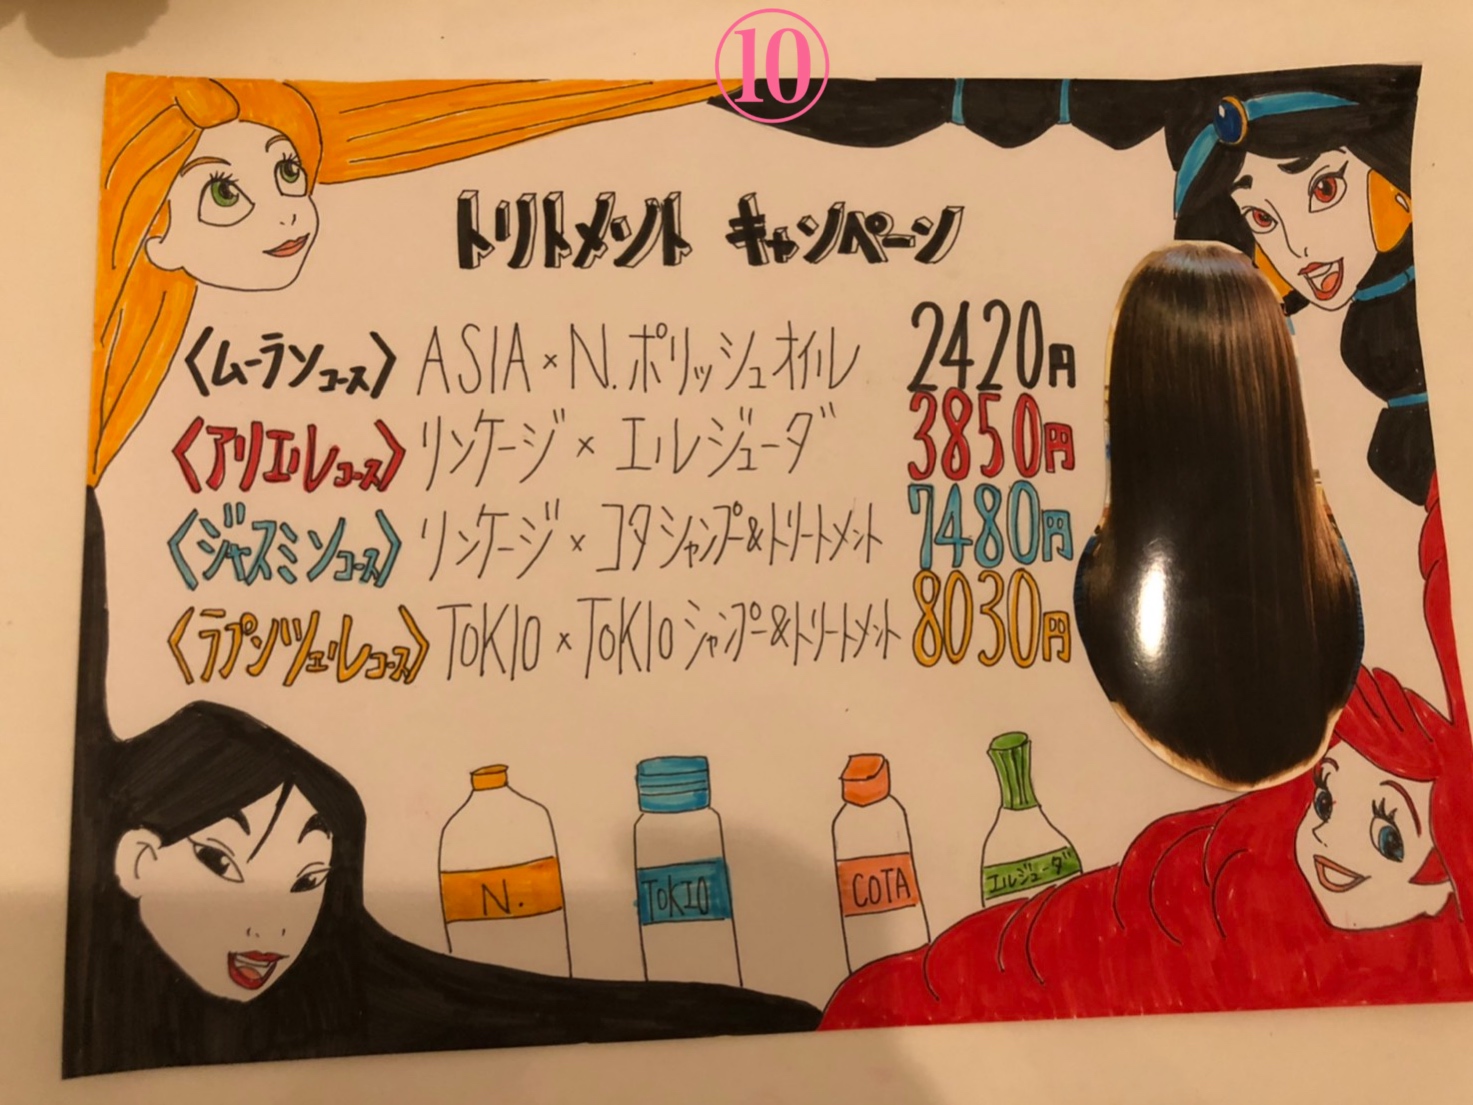 10
トリトメント キャンペーン
〈ムーランコース〉 ASIA × N.ポリッシュオイル 2420円
〈アリエルコース〉 リンケージ × エルジューダ 3850円
〈ジャスミンコース〉 リンケージ × コタシャンプー&トリートメント 7480円
〈ラプンツェルコース〉 TOKIO × TOKIOシャンプー&トリートメント 8030円
N.
TOKIO
COTA
エルジューダ